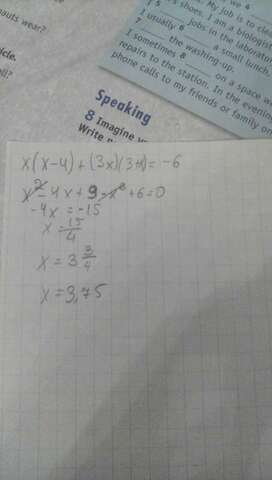 nauts wear?
's shoes. I am a biologis
5 jobs in the laborator
I usually 6 a small lunch
7 the washing-up.
I sometimes 8 on a space w
repairs to the station. In the evening
phone calls to my friends or family o
icle.
Speaking
8 Imagine y
Write
x(x-4)+(3x)(3+x)=-6
x²-4x+9-x²+6=0
-4x=-15
x=15/4
x=3 3/4
x=3,75